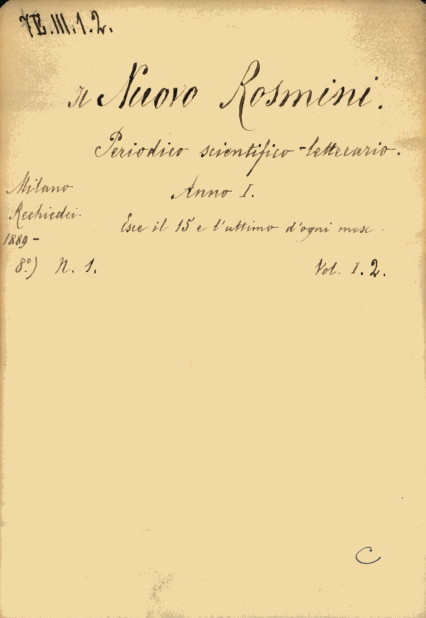 7E.III.1.2.
Il Nuovo Rosmini.
Periodico scientifico-letterario.
Milano
Anno I.
Rechiedei
Esce il 15 e l'ultimo d'ogni mese.
1889-
8º) N. 1.
Vol. I.2.
C